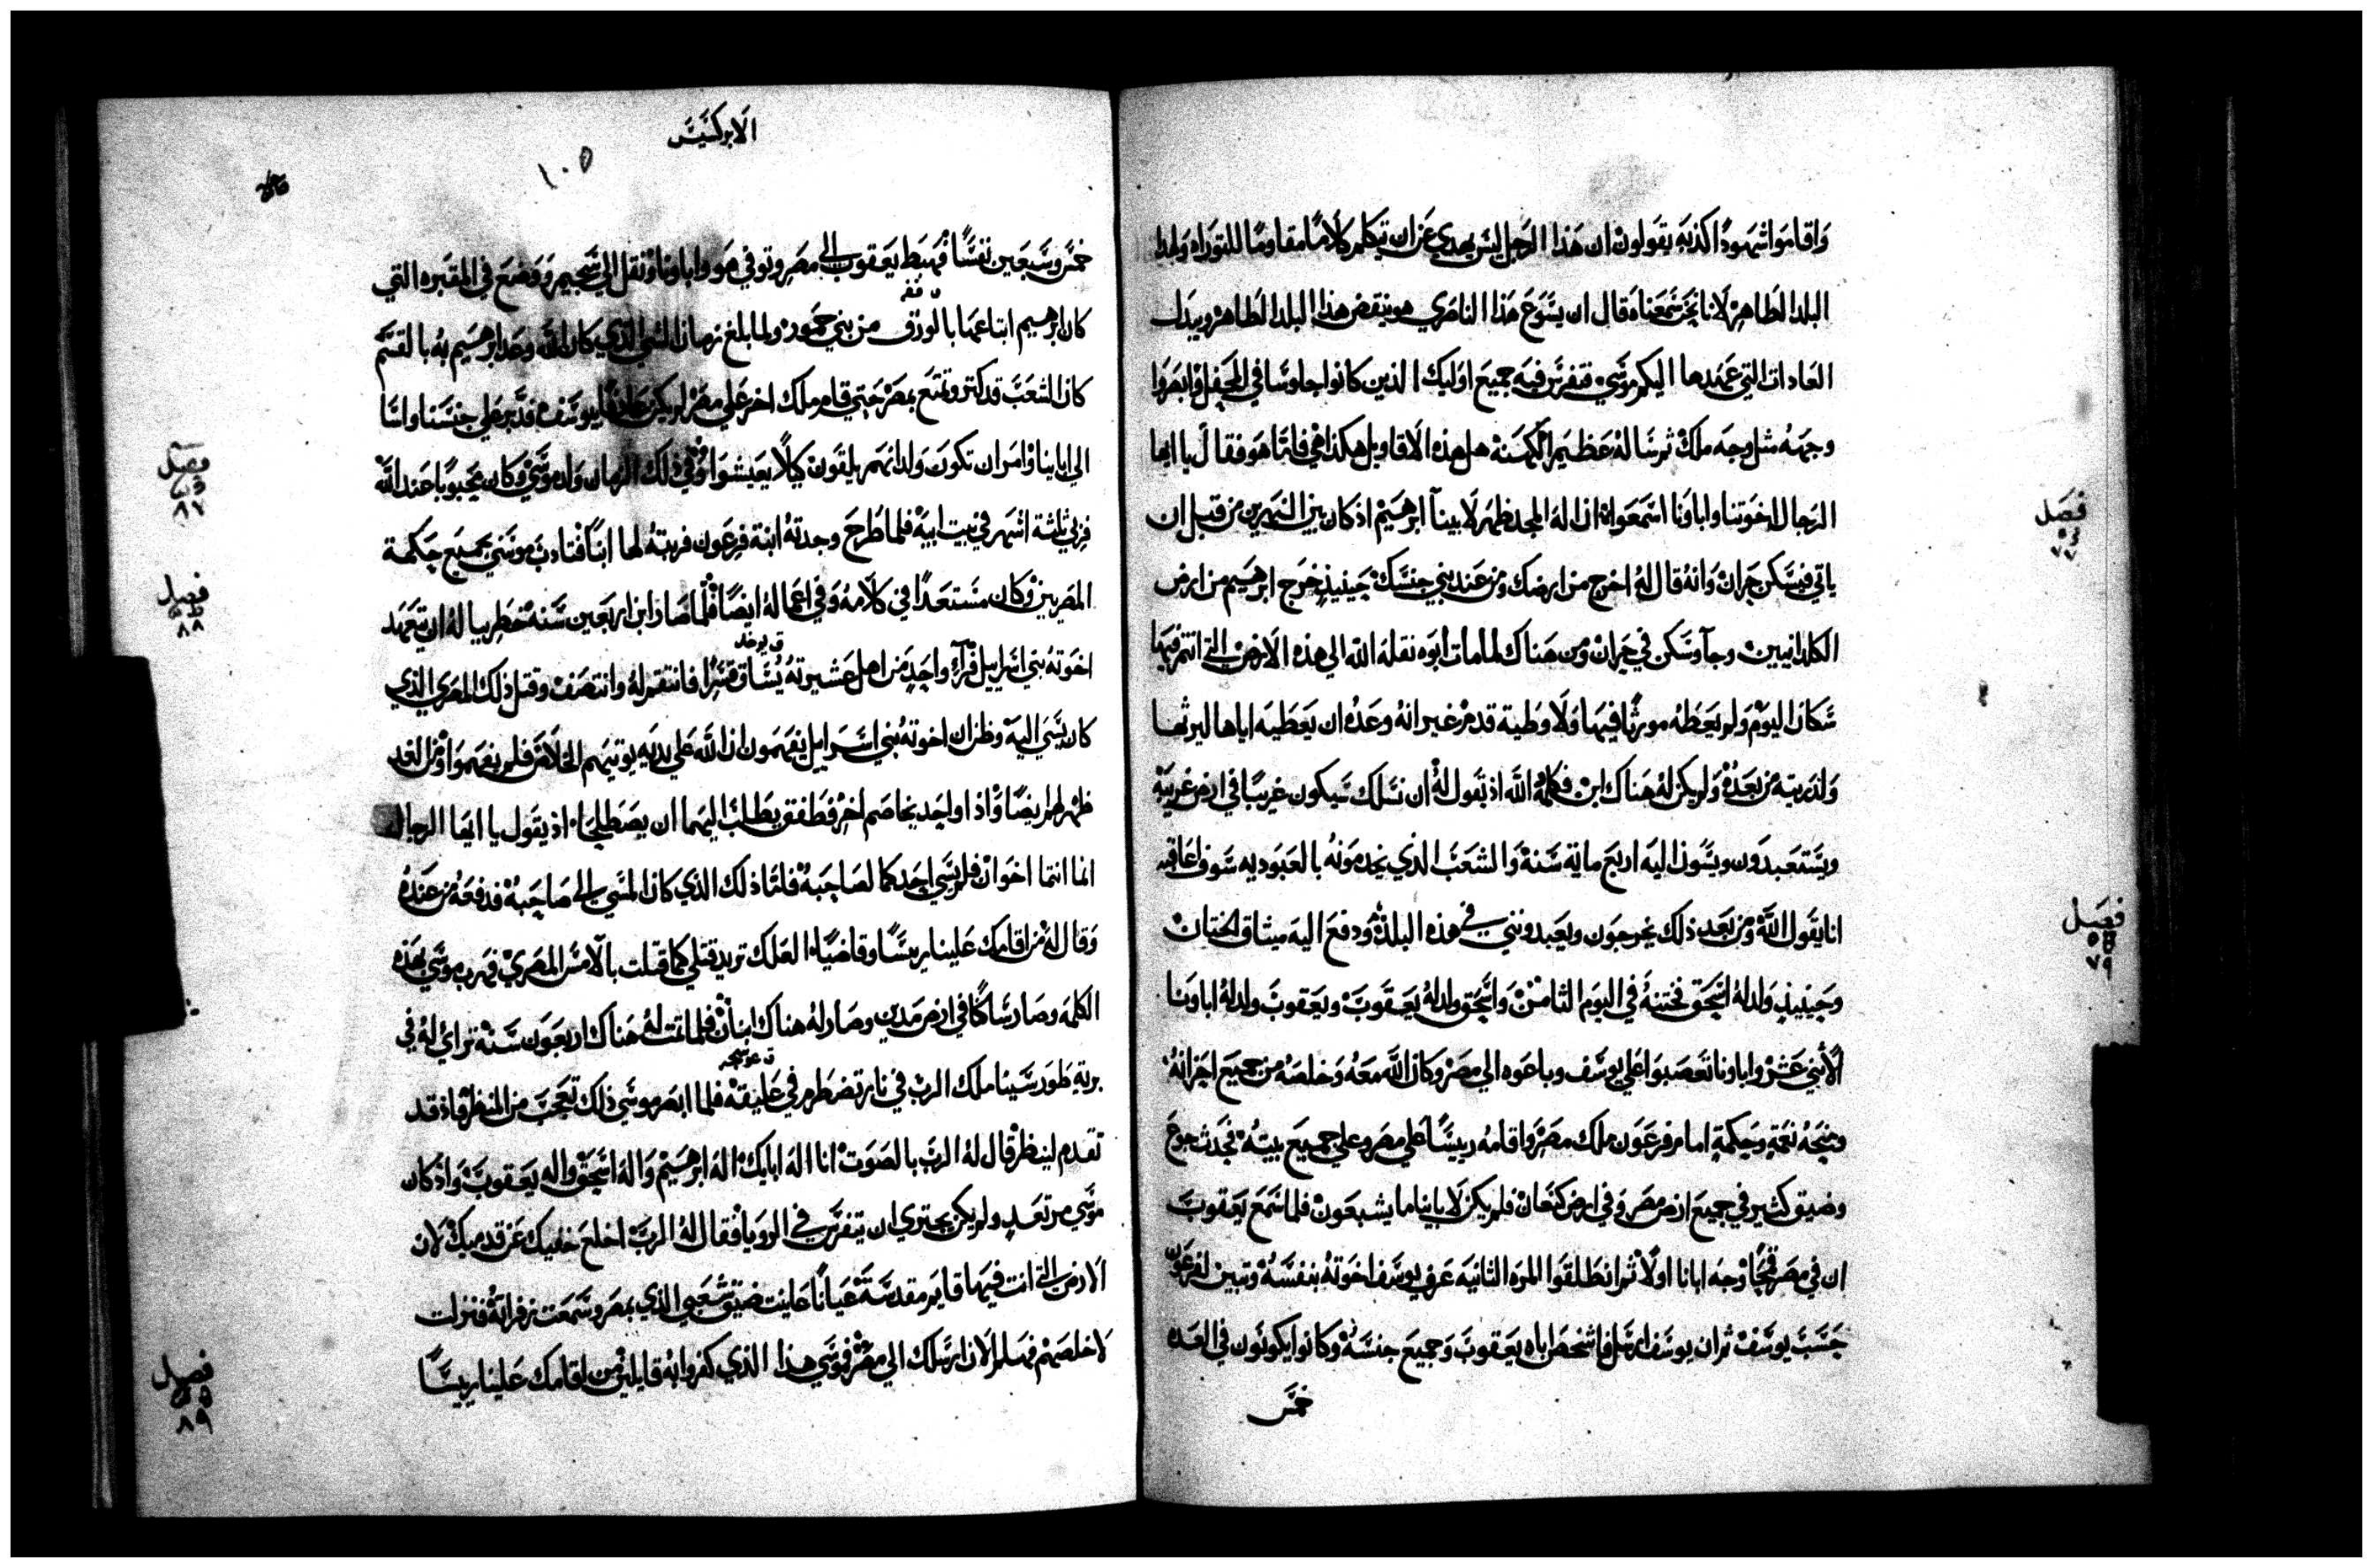 واقاموا شهودًا كذبه يقولون ان هذا الرجل ليس يهدي عن ان يتكلم كلامًا مقاومًا للتوراه ولهذا
البلد الطاهر لاننا نحن سمعناه قال ان يسوع هذا الناصري هو ينقض هذا البلد الطاهر ويبدل
العادات التي عهدها اليكم موسي فتفرس فيه جميع اوليك الذين كانوا جلوسًا في المحفل وابصروا
وجهه مثل وجه ملاك ثم ساله عظيم الكهنة هل هذه الاقاويل هكذا هي فاما هو فقال يا ايها
الرجال اخوتنا واباونا اسمعوا ان اله المجد ظهر لابينا ابرهيم اذ كان بين النهرين من قبل ان
ياتي فيسكن حران وانه قال له اخرج من ارضك ومن عند بني جنسك حينيذ خرج ابرهيم من ارض
الكلدانيين وجا وسكن في حران ومن هناك لما مات ابوه نقله الله الي هذه الارض التي انتم فيها
سكان اليوم ولم يعطه موروثا فيها ولا وطية قدم غير انه وعده ان يعطيه اياها ليرثها
ولذريته من بعده ولم يكن له هناك ابن فكلمه الله اذ يقول له ان نسلك سيكون غريبًا في ارض غريبة
ويستعبدون ويسون اليه اربع ماية سنة والشعب الذي يخدمونه بالعبوديه سوف اعاقبه
انا يقول الله ومن بعد ذلك يخرجون ويعبدونني في هذه البلدة ودفع اليه ميثاق الختان
وحينيذ ولد له اسحق فختنه في اليوم الثامن واسحق ولد له يعقوب ويعقوب ولد له اباونا
الاثني عشر واباونا تعصبوا علي يوسف وباعوه الي مصر وكان الله معه وخلصه من جميع احزانه
ومنحه نعمة وحكمة امام فرعون ملك مصر واقامه رييسًا علي مصر وعلي جميع بيته فحدث جوع
وضيق كثير في جميع ارض مصر وفي ارض كنعان فلم يكن لابايناما يشبعون فلما سمع يعقوب
ان في مصر قمحًا وجه ابانا اولا ثم انطلقوا المره الثانيه عرف يوسف اخوته بنفسه وتبين لفرعون
جنس يوسف ثم ان يوسف ارسل فاشخص اباه يعقوب وجميع جنسه وكانوا يكونون في العده
خمس
فصل
فصل
٧٩
الابركسيس
١٠٥
خمس وسبعين نفسًا فهبط يعقوب الي مصر وتوفي هو واباونا ونقل الي سحيم ووضع في المقبره التي
كان ابرهيم ابتاعها بالورق من بني حمور ولما بلغ زمان الشي الذي كان الله وعد ابرهيم به بالقسم
كان الشعب قد كثر وتمتع بمصر حتي قام ملك اخر علي مصر لم يكن عارفًا بيوسف فدبر علي جنسنا واسا
الي اباينا وامر ان تكون ولدانهم يلقون كيلا يعيشوا وفي ذلك الزمان ولد موسي وكان محبوبًا عند الله
فربي ثلثة اشهر في بيت ابيه فلما طرح وجدته ابنة فرعون فربته لها ابنًا فتادب موسي بجميع حكمة
المصريين وكان مستعدًا في كلامه وفي اعماله ايضًا فلما صار ابن اربعين سنه خطر بباله ان يتعهد
اخوته بني اسراييل فراي واحدٍ من اهل عشيرته يساق قسرًا فانتقم له وانتصف وقتل ذلك المصري الذي
كان يسي اليه وظن ان اخوته بني اسراييل يفهمون ان الله علي يديه يوتيهم الخلاص فلم يفهموا ومن الغد
ظهر لهم ايضًا واذا واحد يخاصم اخر فطفق يطلب اليهما ان يصطلحا اذ يقول يا ايها الرجال
انما انتما اخوان فلم يسي احدكما لصاحبه فاما ذلك الذي كان المسي الي صاحبه فدفعه من عنده
وقال له من اقامك علينا رييسًا وقاضيًا العلك تريد قتلي كما قتلت بالامس المصري فهرب موسي بهذه
الكلمه وصار ساكنًا في ارض مدين وصار له هناك ابنان فلما تمت له هناك اربعون سنة تراي له في
برية طور سينا ملك الرب في نار تضطرم في عليقة فلما ابصر موسي ذلك تعجب من المنظر فاذ قد
تقدم لينظر قال له الرب بالصوت انا اله ابايك اله ابرهيم واله اسحق واله يعقوب واذ كان
موسي مرتعدٍ ولم يكن يجتري ان يتفرس في الرويا فقال له الرب اخلع خفيك عن قدميك لان
الارض التي انت فيها قايم مقدسة عيانًا عاينت ضيق شعبي الذي بمصر وسمعت زفراته فنزلت
لاخلصهم فهلم الان ارسلك الي مصر فموسي هذا الذي كفروا به قايلين من اقامك علينا رييسًا
فصل
٨٧
فصل
٨٨
فصل
٨٩